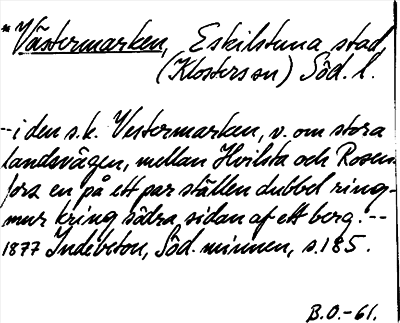 *Västermarken, Eskilstuna stad,
(Klosters sn) Söd. l.
--i den s.k. Vestermarken, v. om stora
landsvägen, mellan Hvilsta och Rosen-
fors en på ett par ställen dubbel ring-
mur kring södra sidan af ett berg. --
1877 Indebetou, Söd. minnen, s. 185.
B.O.-61.